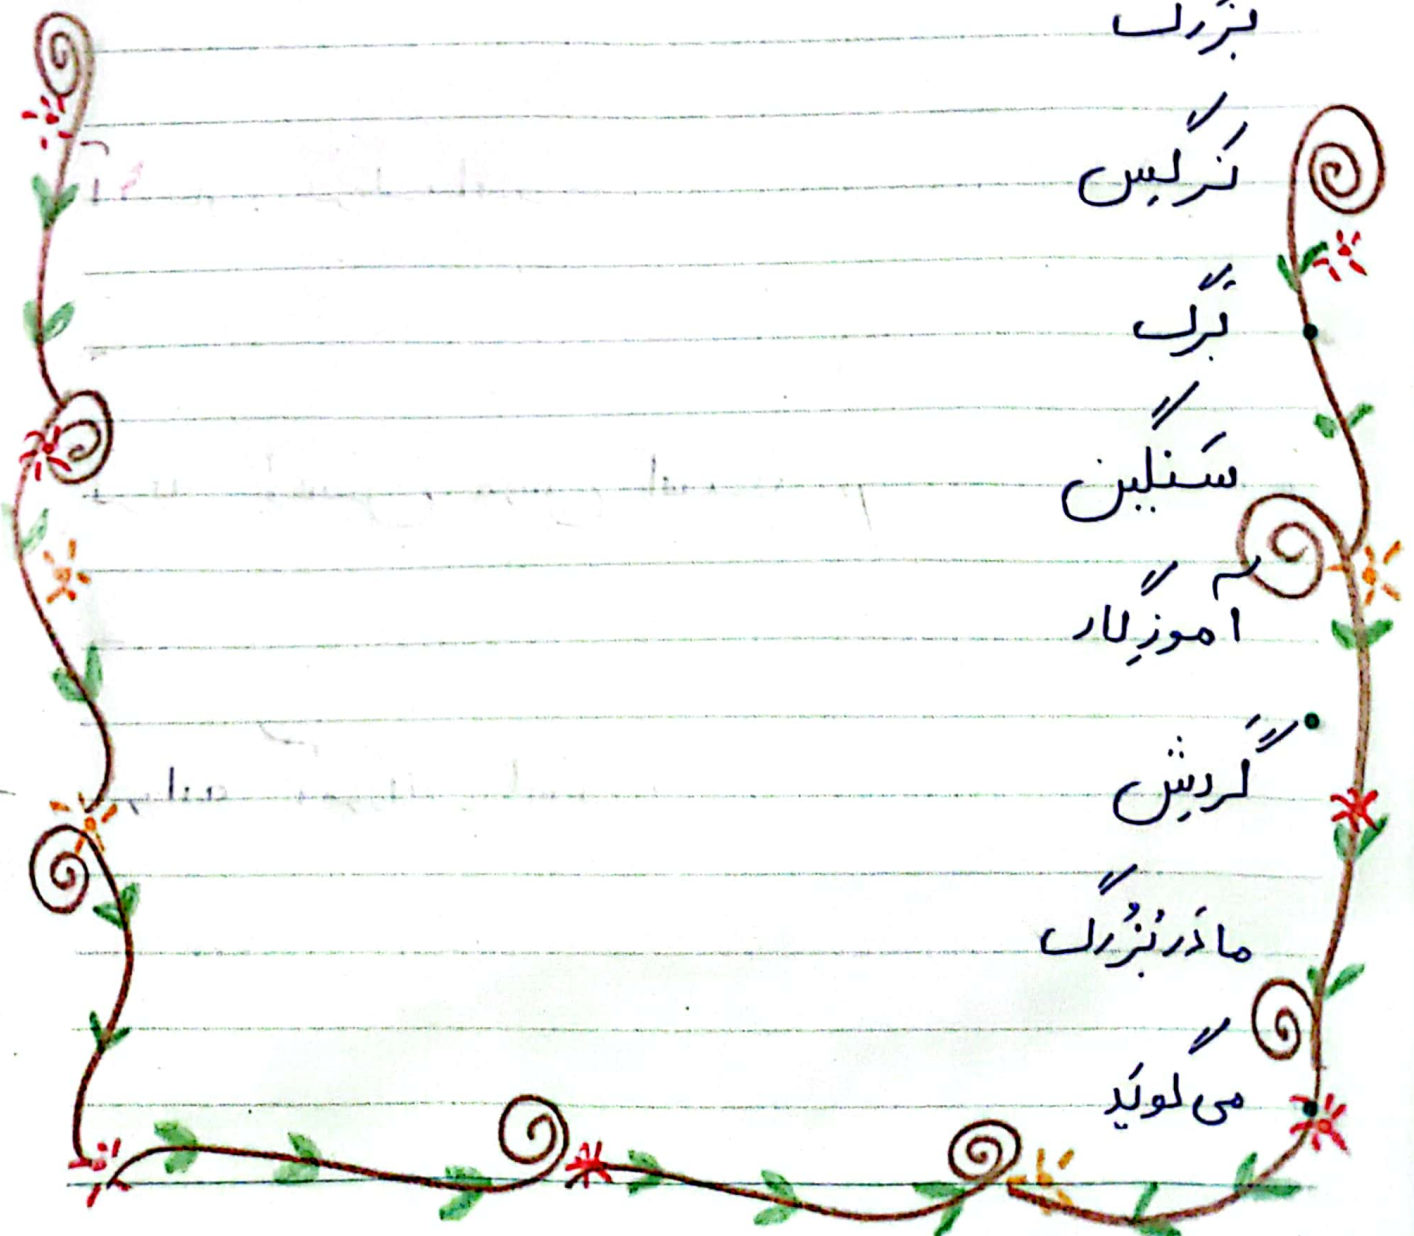 بزرگ
نَرگِس
بَرگ
سَنگین
آموزِگار
گَردِش
مادَربُزُرگ
می‌گویَد